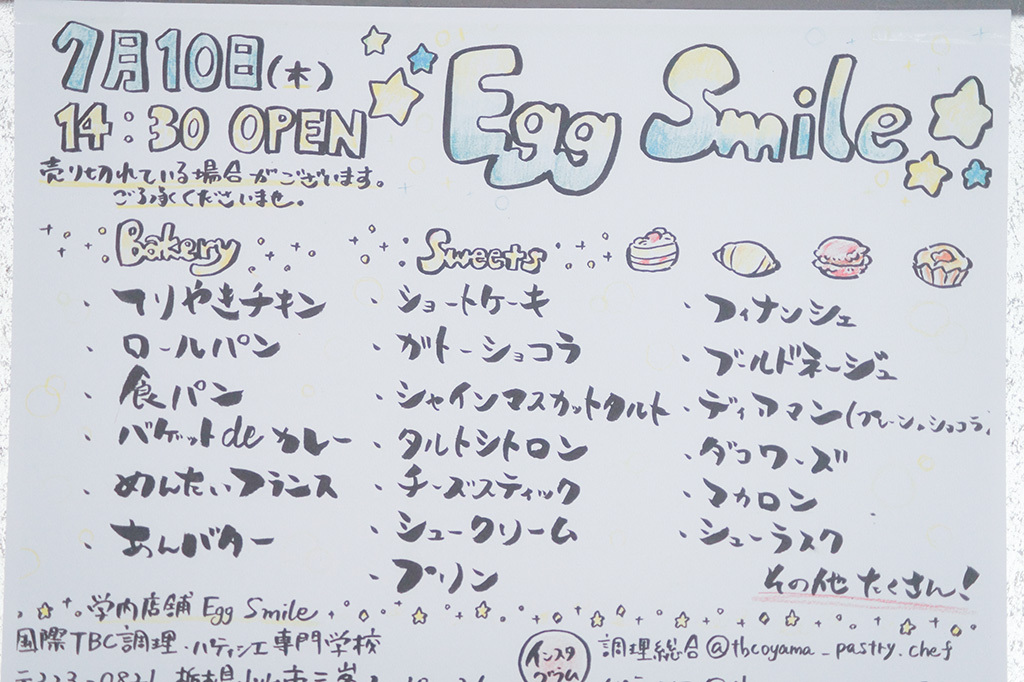 7月10日(木)
14:30 OPEN
Egg Smile
売り切れている場合がございます。
ご了承くださいませ。
Bakery
・てりやきチキン
・ロールパン
・食パン
・バゲットdeカレー
・めんたいフランス
・あんバター
Sweets
・ショートケーキ
・ガトーショコラ
・シャインマスカットタルト
・タルトシトロン
・チーズスティック
・シュークリーム
・プリン
・フィナンシェ
・ブールドネージュ
・ディアマン(プレーン・ショコラ)
・ダコワーズ
・マカロン
・シューラスク
その他たくさん!
学内店舗 Egg Smile
国際TBC調理・パティシエ専門学校
〒323-0821 栃木県小山市三峯
インスタグラム
調理総合@tbcoyama_pastry.chef